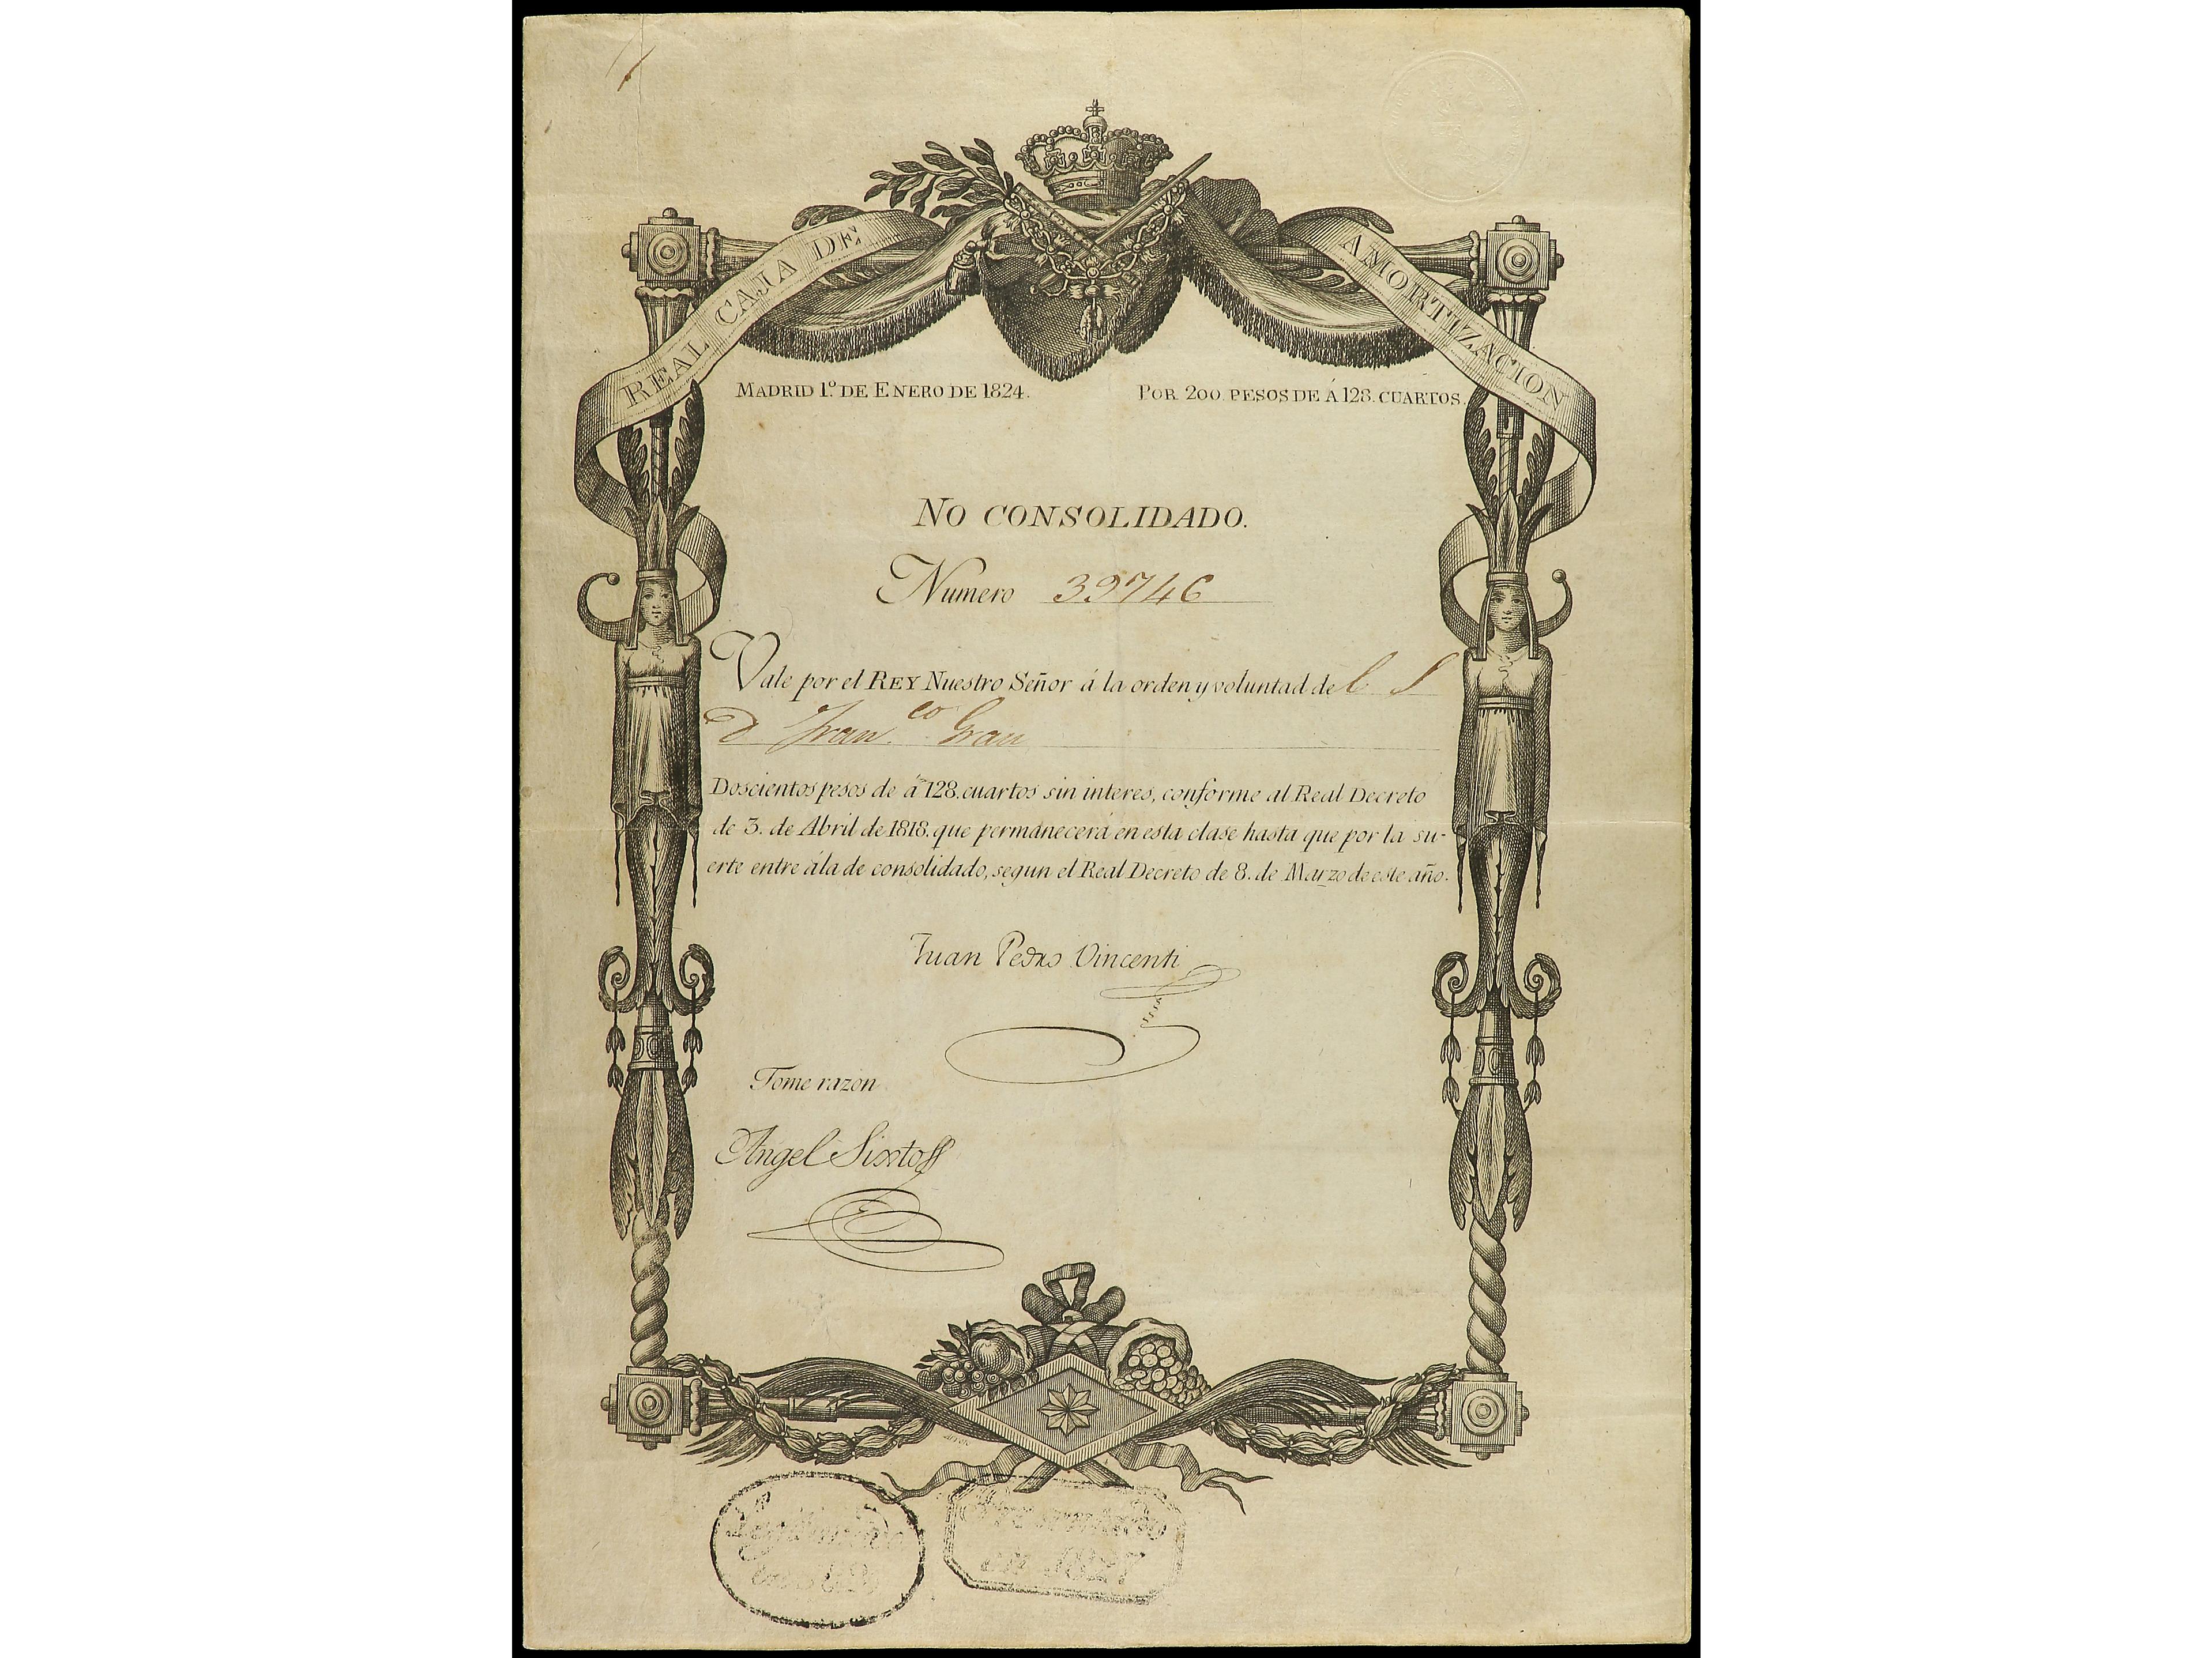 REAL CAJA DE AMORTIZACION
MADRID 1.º DE ENERO DE 1824. POR 200 PESOS DE Á 128. CUARTOS.
NO CONSOLIDADO.
Numero 39746
Vale por el REY Nuestro Señor á la orden y voluntad del S
D Fran.co Grau
Doscientos pesos de á 128. cuartos sin interes, conforme al Real Decreto
de 3. de Abril de 1818. que permanecerá en esta clase hasta que por la su-
erte entre á la de consolidado, segun el Real Decreto de 8. de Marzo de este año.
Juan Pedro Vincenti
Tome razon
Angel Sixto
Presentado
en 1827